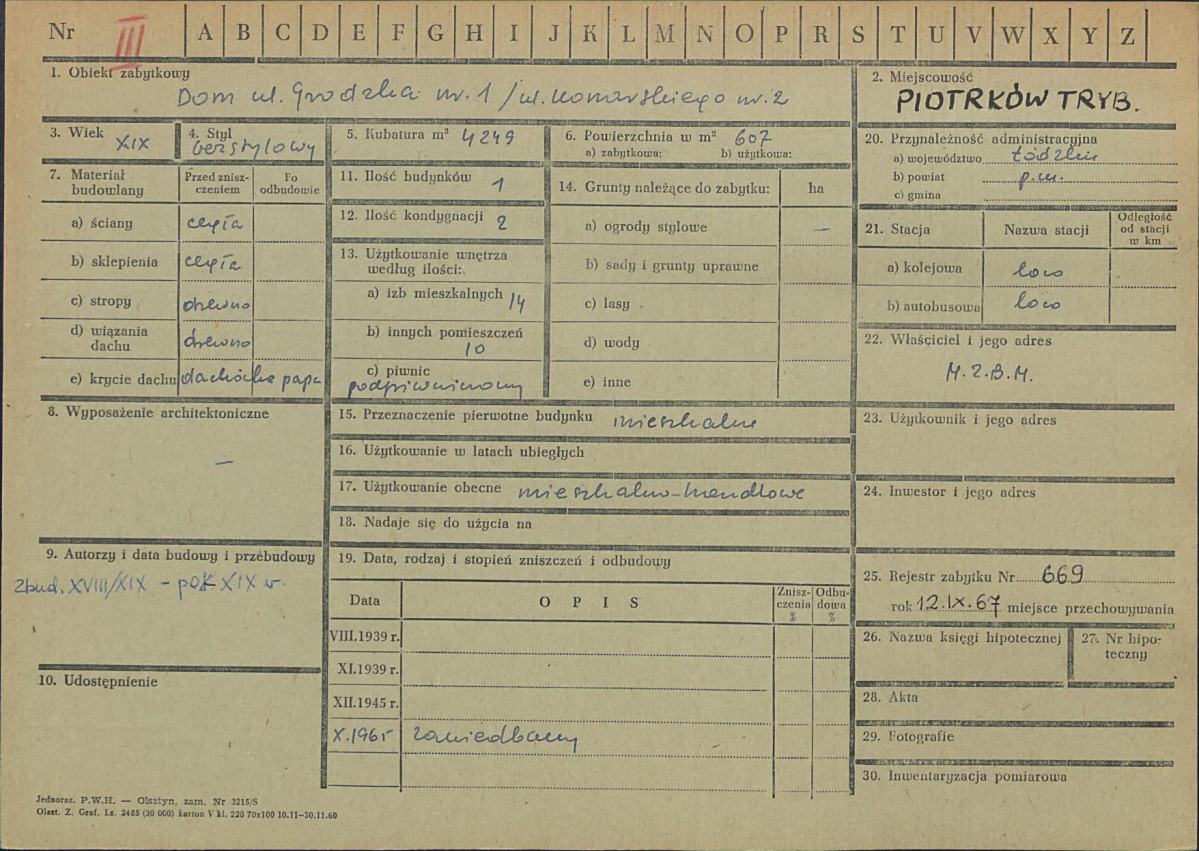 Nr III A B C D E F G H I J K L M N O P R S T U V W X Y Z
1. Obiekt zabytkowy
Dom ul. Grodzka nr. 1 / ul. Konarskiego nr. 2
2. Miejscowość
PIOTRKÓW TRYB.
3. Wiek XIX
4. Styl
bezstylowy
5. Kubatura m³ 4249
6. Powierzchnia w m² 607
a) zabytkowa: b) użytkowa:
7. Materiał budowlany
Przed znisz-czeniem
Po odbudowie
a) ściany cegła
b) sklepienia cegła
c) stropy drewno
d) wiązania dachu drewno
e) krycie dachu dachówka papa
8. Wyposażenie architektoniczne
—
9. Autorzy i data budowy i przebudowy
Zbud. XVIII/XIX - poł XIX w.
10. Udostępnienie
11. Ilość budynków 1
12. Ilość kondygnacji 2
13. Użytkowanie wnętrza
według ilości:
a) izb mieszkalnych 14
b) innych pomieszczeń
10
c) piwnic
podpiwniczony
14. Grunty należące do zabytku: ha
a) ogrody stylowe —
b) sady i grunty uprawne
c) lasy
d) wody
e) inne
15. Przeznaczenie pierwotne budynku mieszkalne
16. Użytkowanie w latach ubiegłych
17. Użytkowanie obecne mieszkalno-handlowe
18. Nadaje się do użycia na
19. Data, rodzaj i stopień zniszczeń i odbudowy
Data OPIS Znisz-czenia % Odbu-dowa %
VIII.1939 r.
XI.1939 r.
XII.1945 r.
X.1965 zaniedbany
20. Przynależność administracyjna
a) województwo Łódzkie
b) powiat p.m.
c) gmina
21. Stacja Nazwa stacji Odległość od stacji w km
a) kolejowa loco
b) autobusowa loco
22. Właściciel i jego adres
M.Z.B.M.
23. Użytkownik i jego adres
24. Inwestor i jego adres
25. Rejestr zabytku Nr 669
rok 12.IX.67 miejsce przechowywania
26. Nazwa księgi hipotecznej
27. Nr hipo-
teczny
28. Akta
29. Fotografie
30. Inwentaryzacja pomiarowa
Jednoraz. P.W.H. — Olsztyn, zam. Nr 3215/S
Olszt. Z. Graf. Lz. 2485 (20 000) karton V kl. 220 70x100 10.11—30.11.60